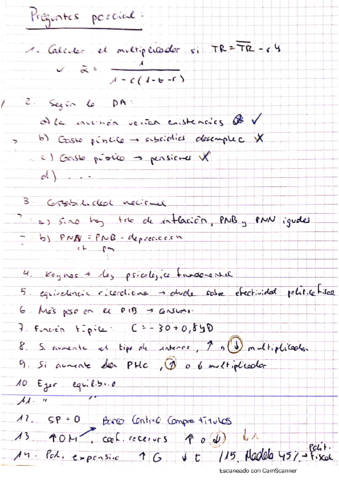 Preguntas parcial:
1. Calcular el multiplicador si TR = TR - rY
✓ α = 1
1-c(1-t-r)
2. Según la DA:
a) La inversión varían existencias ✓
b) Gasto público → subsidios desempleo X
c) Gasto público → pensiones X
d) ...
3. Contabilidad nacional
a) Si no hay tasa de inflación, PNB y PNN iguales
b) PNN = PNB - depreciación
pm
4. Keynes → ley psicológica fundamental
5. equivalencia ricardiana → duda sobre efectividad política fiscal
6. Más peso en el PIB → consumo
7. Función típica: C = -30 + 0,8YD
8. Si aumenta el tipo de interés, ↑ o ↓ multiplicador
9. Si aumenta la PMC, ↑ o ↓ multiplicador
10 Ejer equilibrio
11. "
12. SP = 0 Banco Central compra títulos
13. ↑OM, coef. reservas ↑ o ↓
14. Pol. expansiva ↑G ↓t /15. Modelo 45% → polít. fiscal
Escaneado con CamScanner